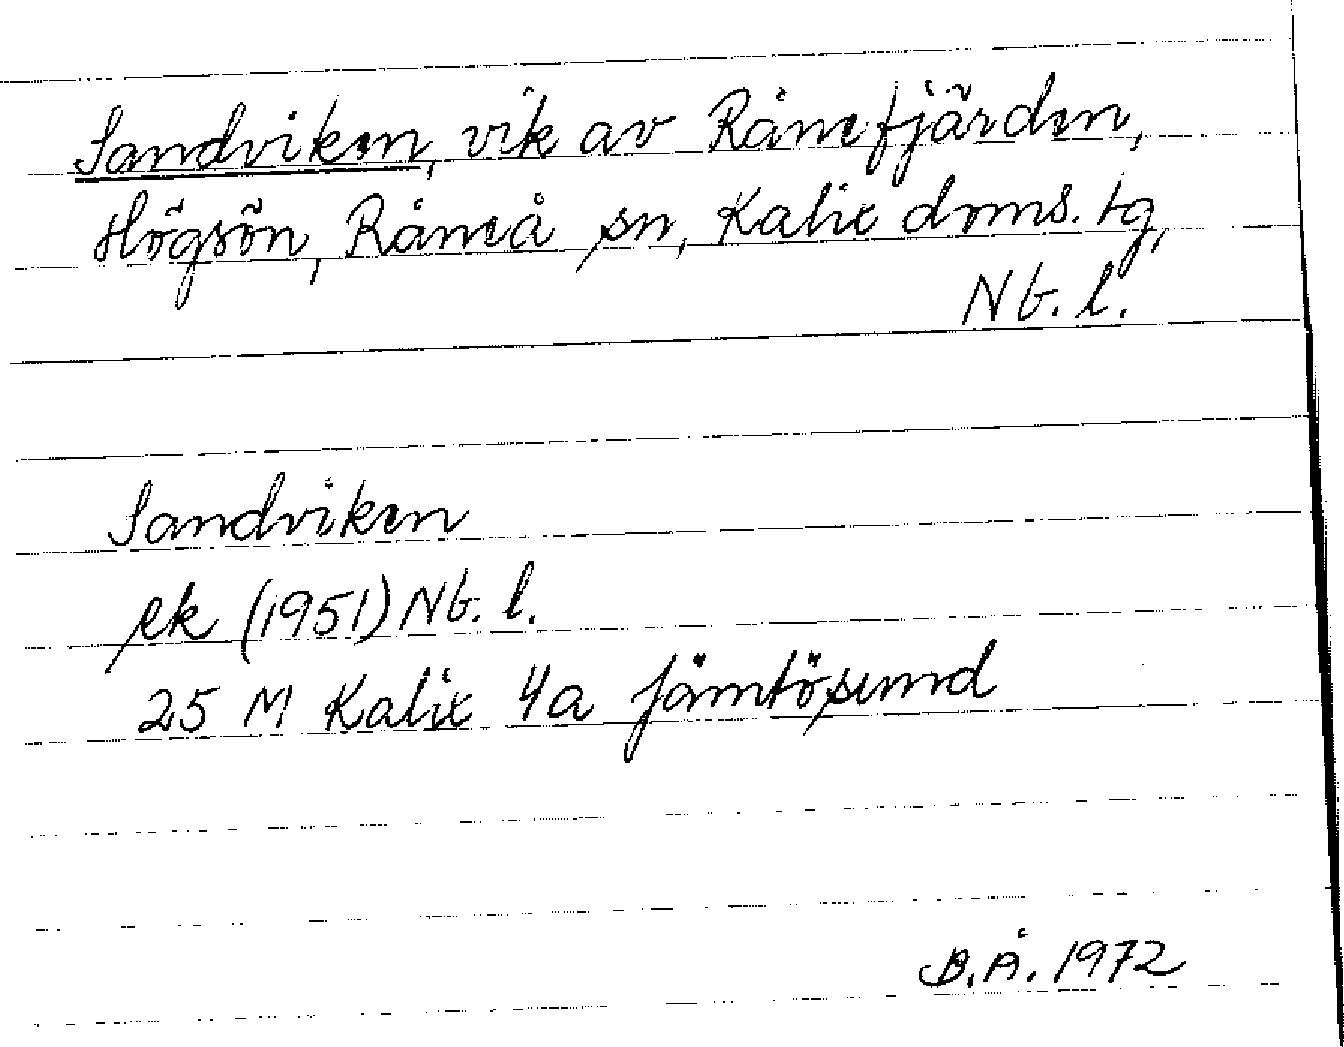 Sandviken, vik av Rånefjärden,
Högsön, Råneå sn, Kalix doms. tg,
Nb. l.
Sandviken
ek (1951) Nb. l.
25 M Kalix 4a Jämtösund
B.Å. 1972